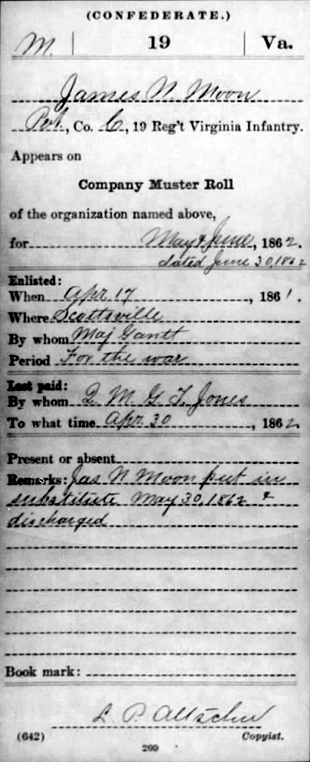 (CONFEDERATE.)
M. | 19 | Va.
James N. Moon
Pvt, Co. C, 19 Reg't Virginia Infantry.
Appears on
Company Muster Roll
of the organization named above,
for May & June, 1862.
dated June 30, 1862
Enlisted:
When Apr 17, 1861.
Where Scottsville
By whom Maj Gantt
Period For the war
Last paid:
By whom Q. M. G. T. Jones
To what time Apr 30, 1862.
Present or absent
Remarks: Jas N. Moon put in
substitute May 30, 1862 &
discharged
Book mark:
L. P.
(642) Copyist.